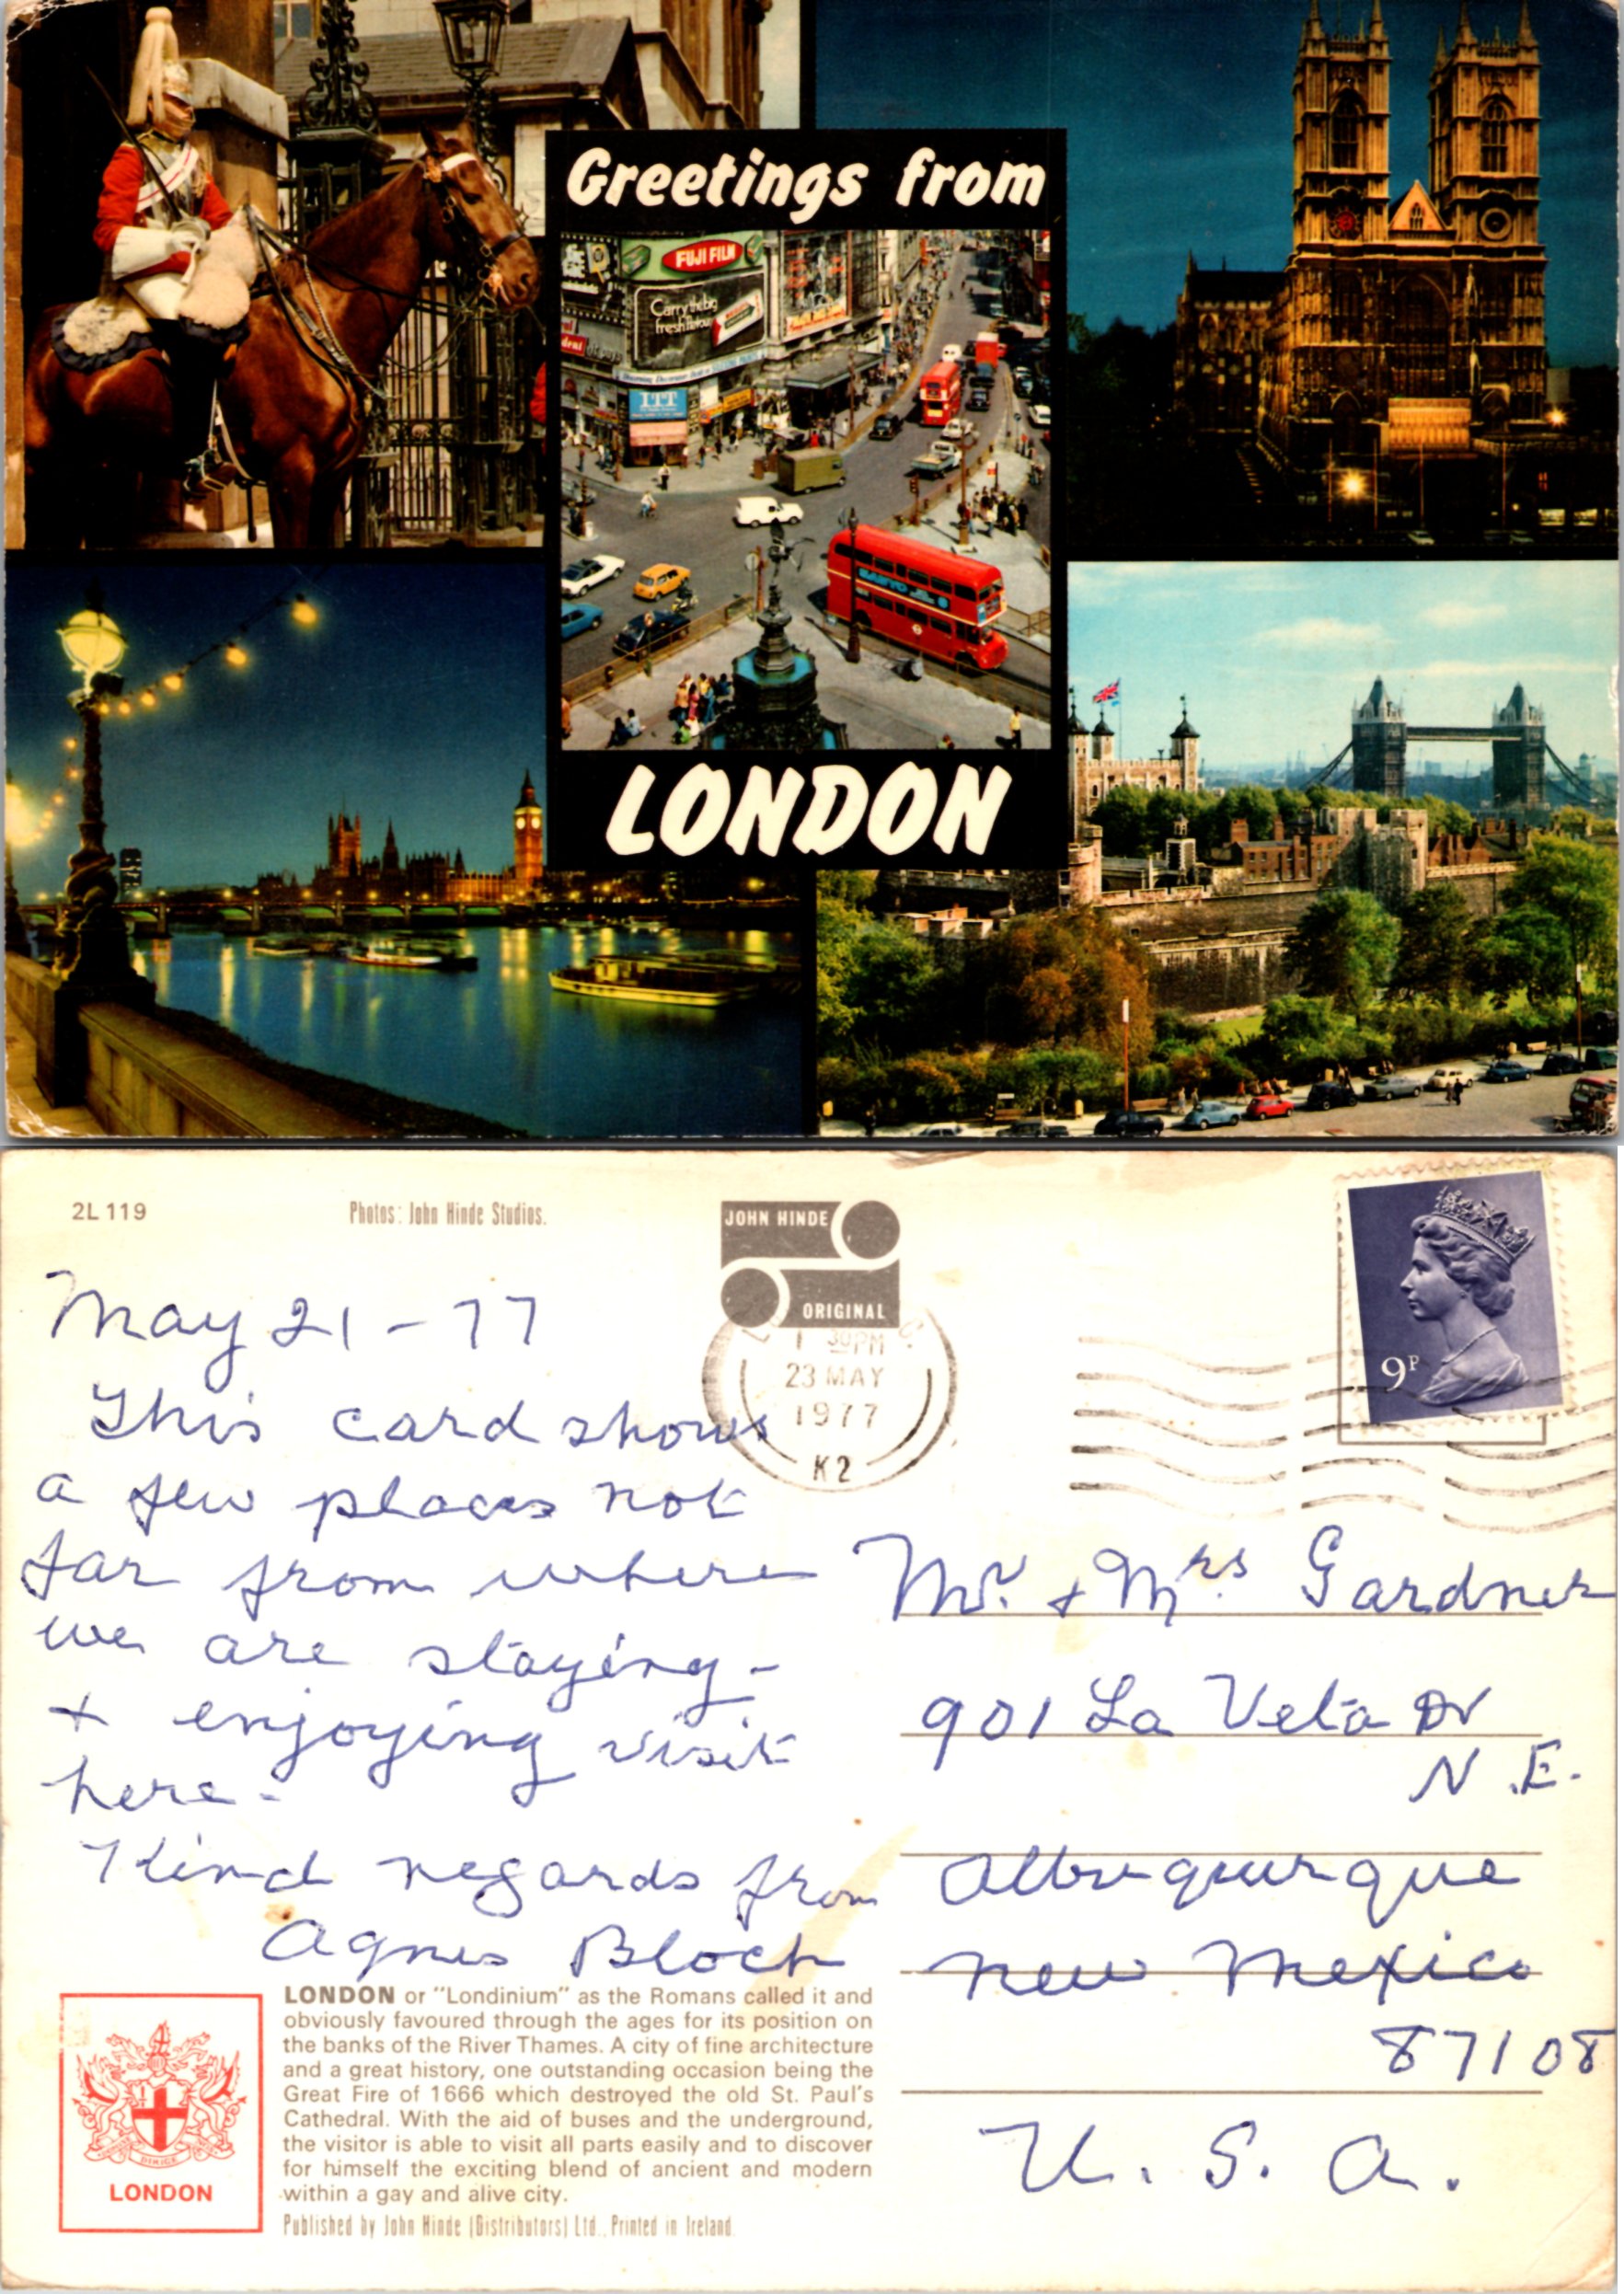 Greetings from
FUJI FILM
Carry the big
fresh flavour
ITT
SANYO
LONDON
2L 119
Photos: John Hinde Studios.
JOHN HINDE
ORIGINAL
1 30PM
23 MAY
1977
K2
9P
May 21-77
This card shows
a few places not
far from where
we are staying -
+ enjoying visit
here -
Kind regards from
Agnes Bloch
Mr. + Mrs. Gardner
901 La Veta Dr
N.E.
Albuquerque
New Mexico
87108
U.S.A.
LONDON or "Londinium" as the Romans called it and
obviously favoured through the ages for its position on
the banks of the River Thames. A city of fine architecture
and a great history, one outstanding occasion being the
Great Fire of 1666 which destroyed the old St. Paul's
Cathedral. With the aid of buses and the underground,
the visitor is able to visit all parts easily and to discover
for himself the exciting blend of ancient and modern
within a gay and alive city.
Published by John Hinde (Distributors) Ltd., Printed in Ireland.
DIRIGE
LONDON